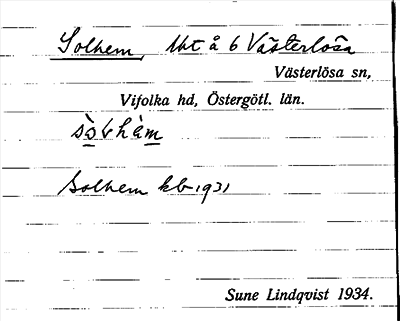 Solhem, lht å 6 Västerlösa
Västerlösa sn,
Vifolka hd, Östergötl. län.
Solhem kb 1931
Sune Lindqvist 1934.